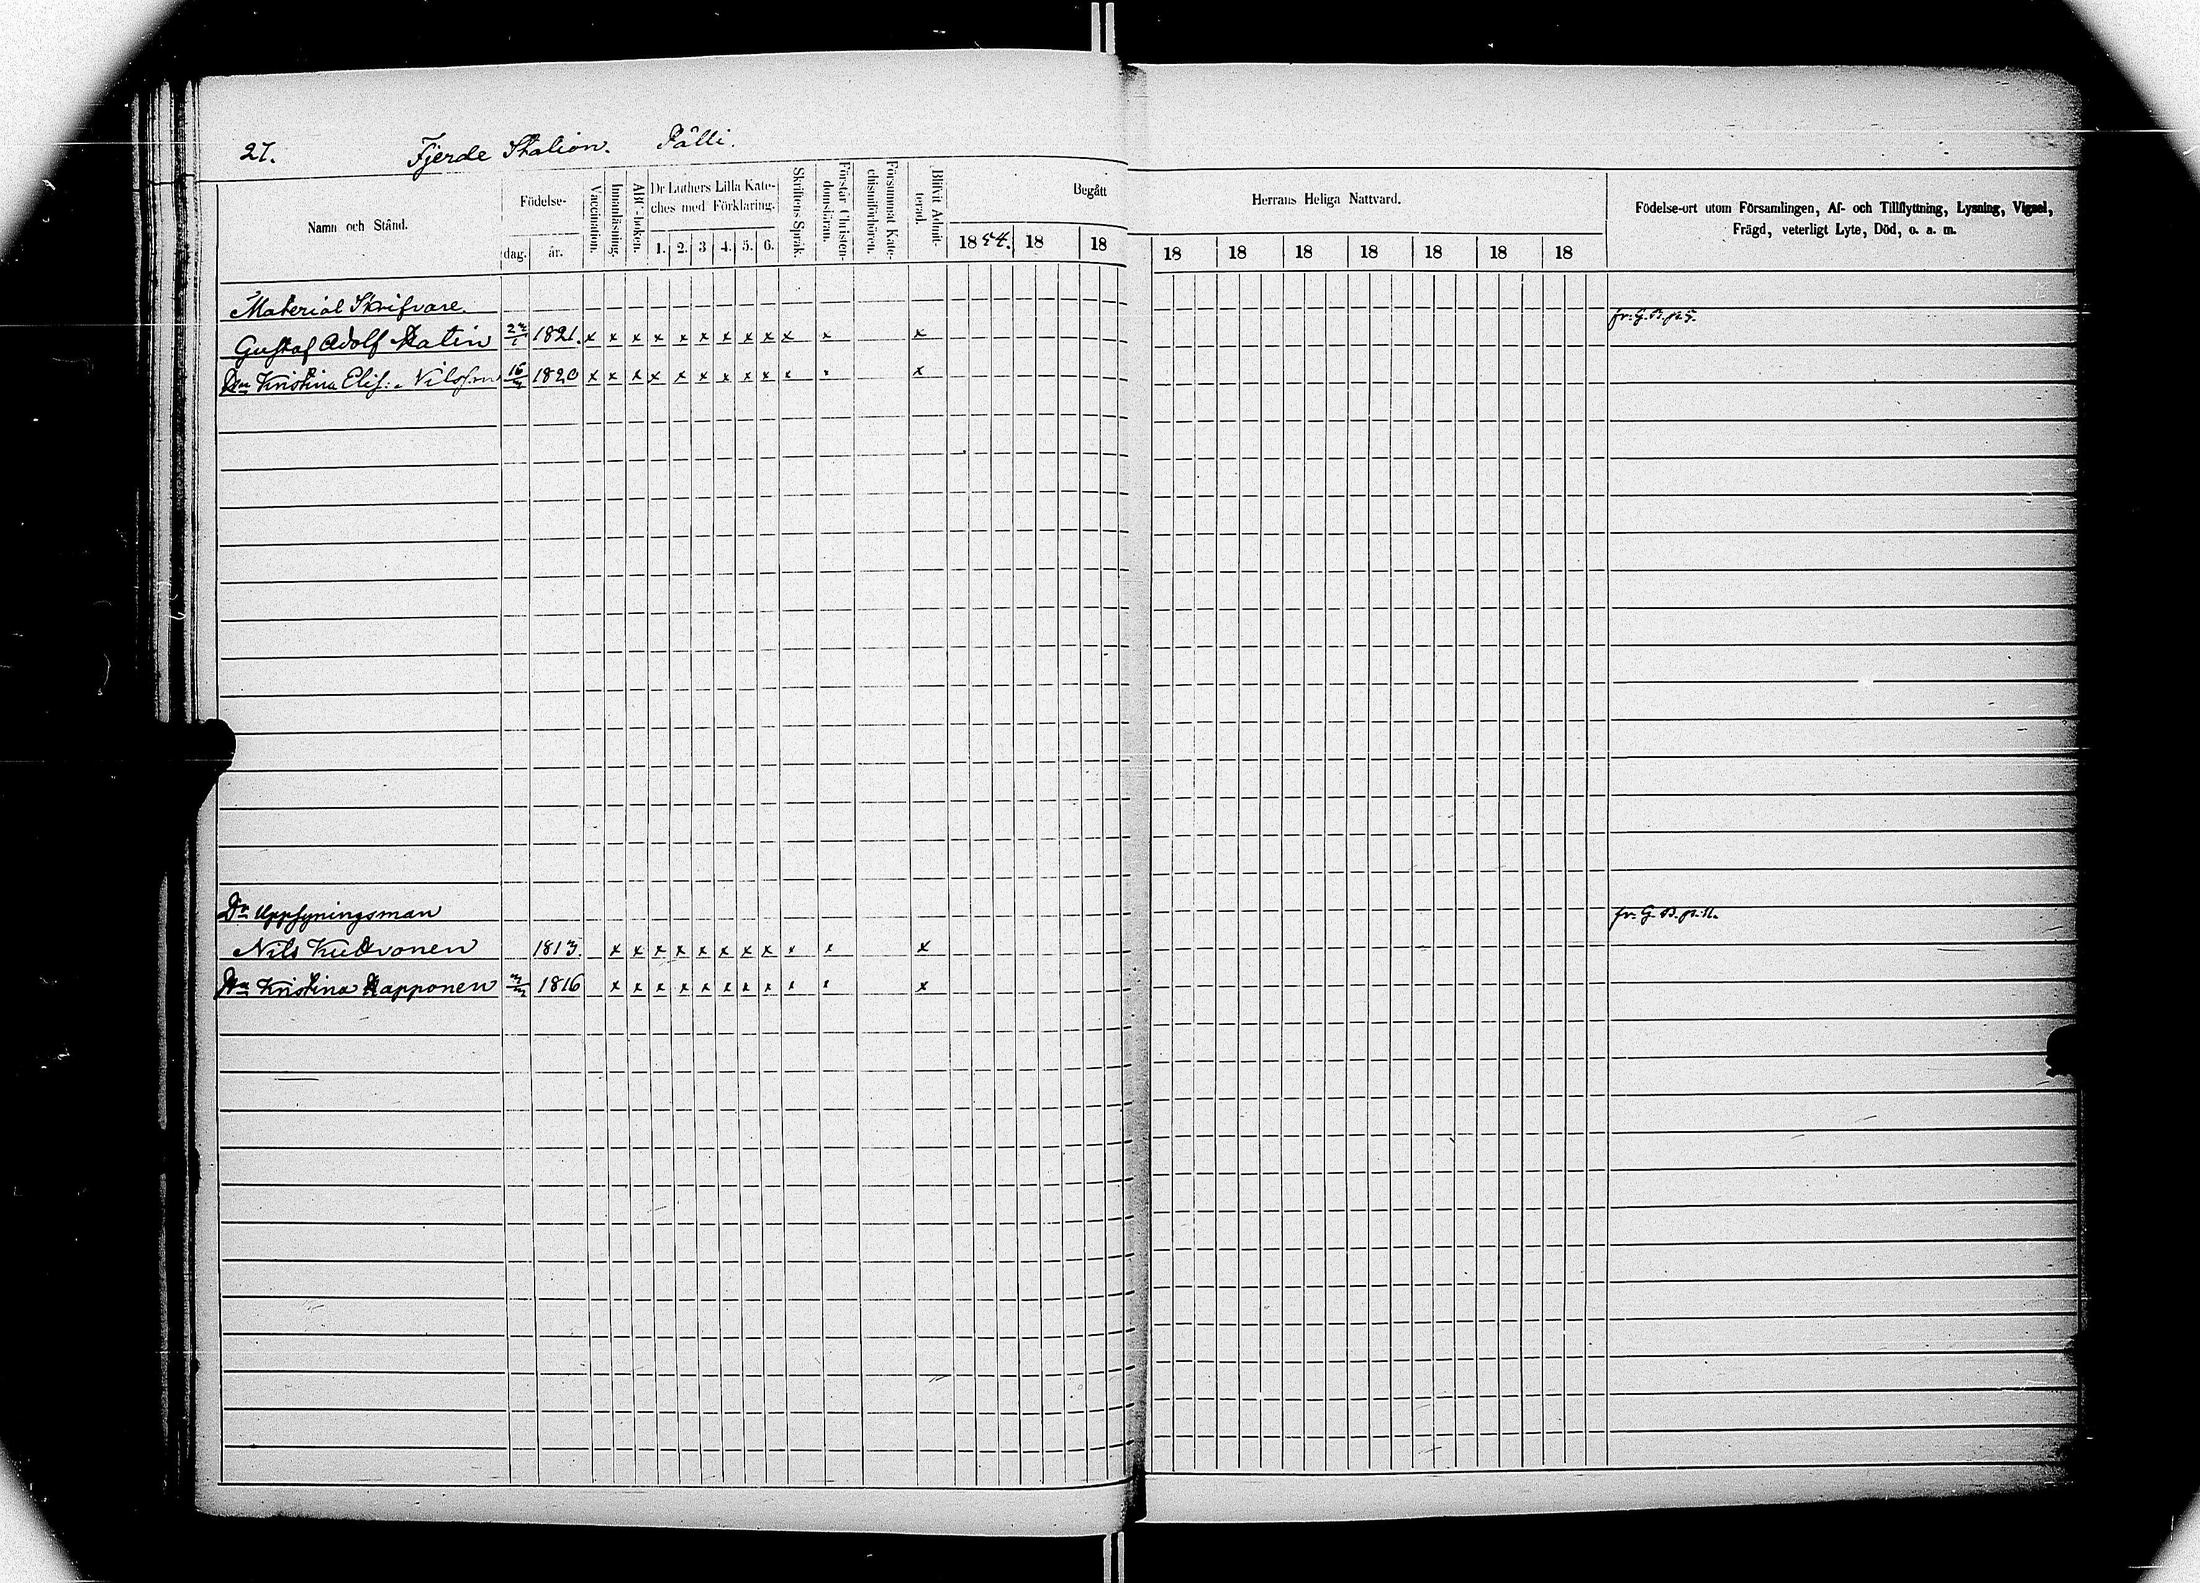 27. Fjerde Station. Pålli.
Namn och Stånd.
Födelse-
dag. år.
Vaccination.
Innanläsning.
ABC-boken.
Dr Luthers Lilla Kate-
ches med Förklaring.
1. 2. 3 4. 5. 6.
Skriftens Språk.
Förstår Christen-
domsläran.
Försummat Kate-
chismiförhören.
Blifvit Admit-
terad.
Begått
Herrans Heliga Nattvard.
1854. 18 18 18 18 18 18 18 18 18
Födelse-ort utom Församlingen, Af- och Tillflyttning, Lysning, Vigsel,
Frägd, veterligt Lyte, Död, o. a. m.
Material Skrifvare
fr: G. B. p. 5.
Gustaf Adolf 1821. x x x x x x x x x x x x
Kristina Elis: 16 1820 x x x x x x x x x x x x
Dn Uppsyningsman
fr: G. B. p.
Nils 1813. x x x x x x x x x x x
Kristina 1816 x x x x x x x x x x x